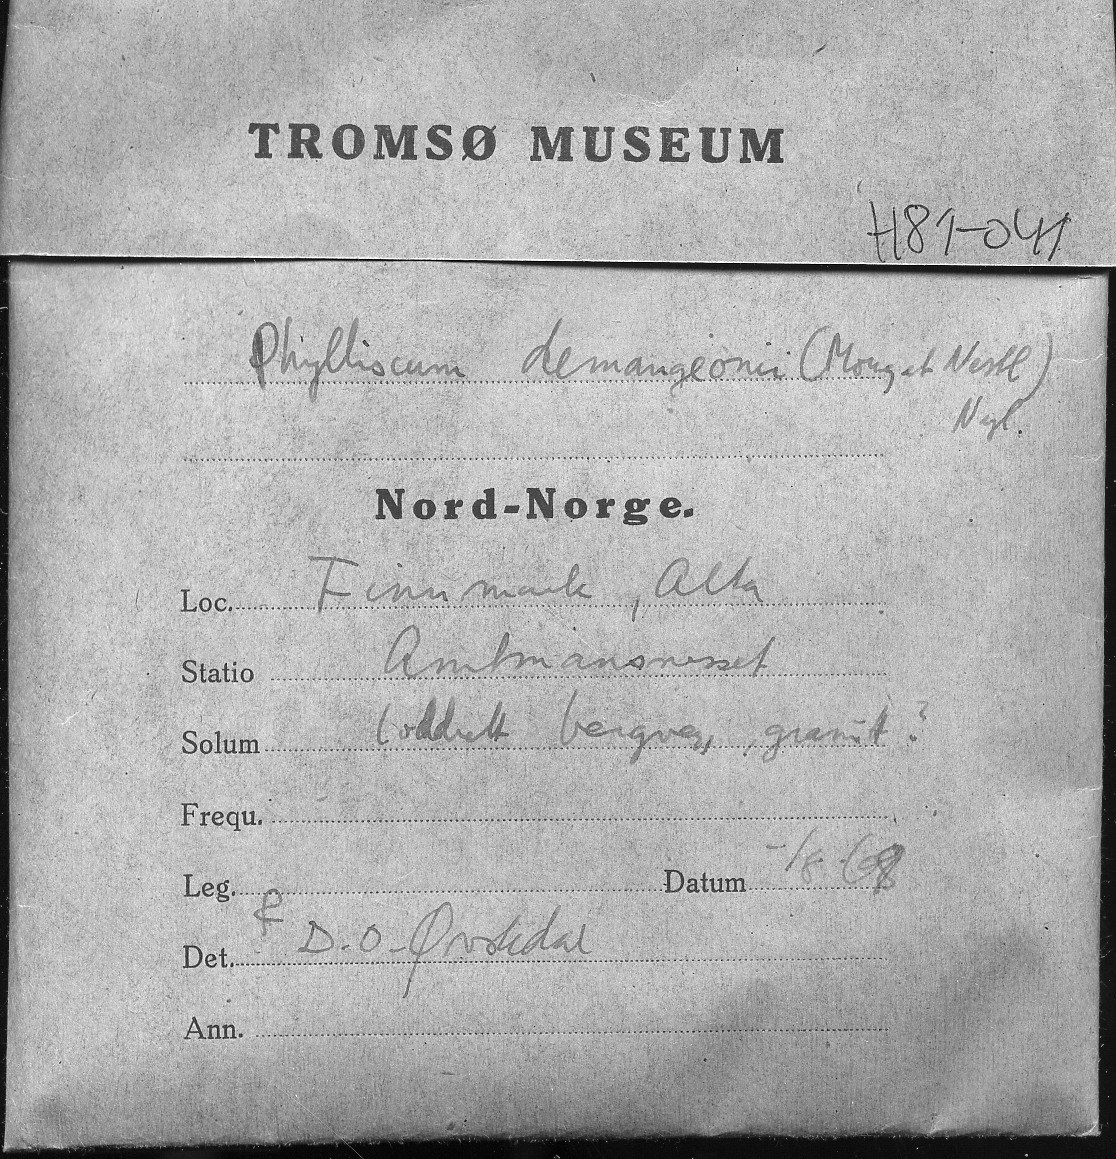 TROMSØ MUSEUM
H81-041
Phylliscum demangeonii (Moug et Nestl)
Nyl.
Nord-Norge.
Loc. Finnmark, Alta
Statio Amtmansnesset
Solum loddrett bergvegg, granit?
Frequ.
Leg. Datum -/8-68
& Det. D.O. Øvstedal
Ann.